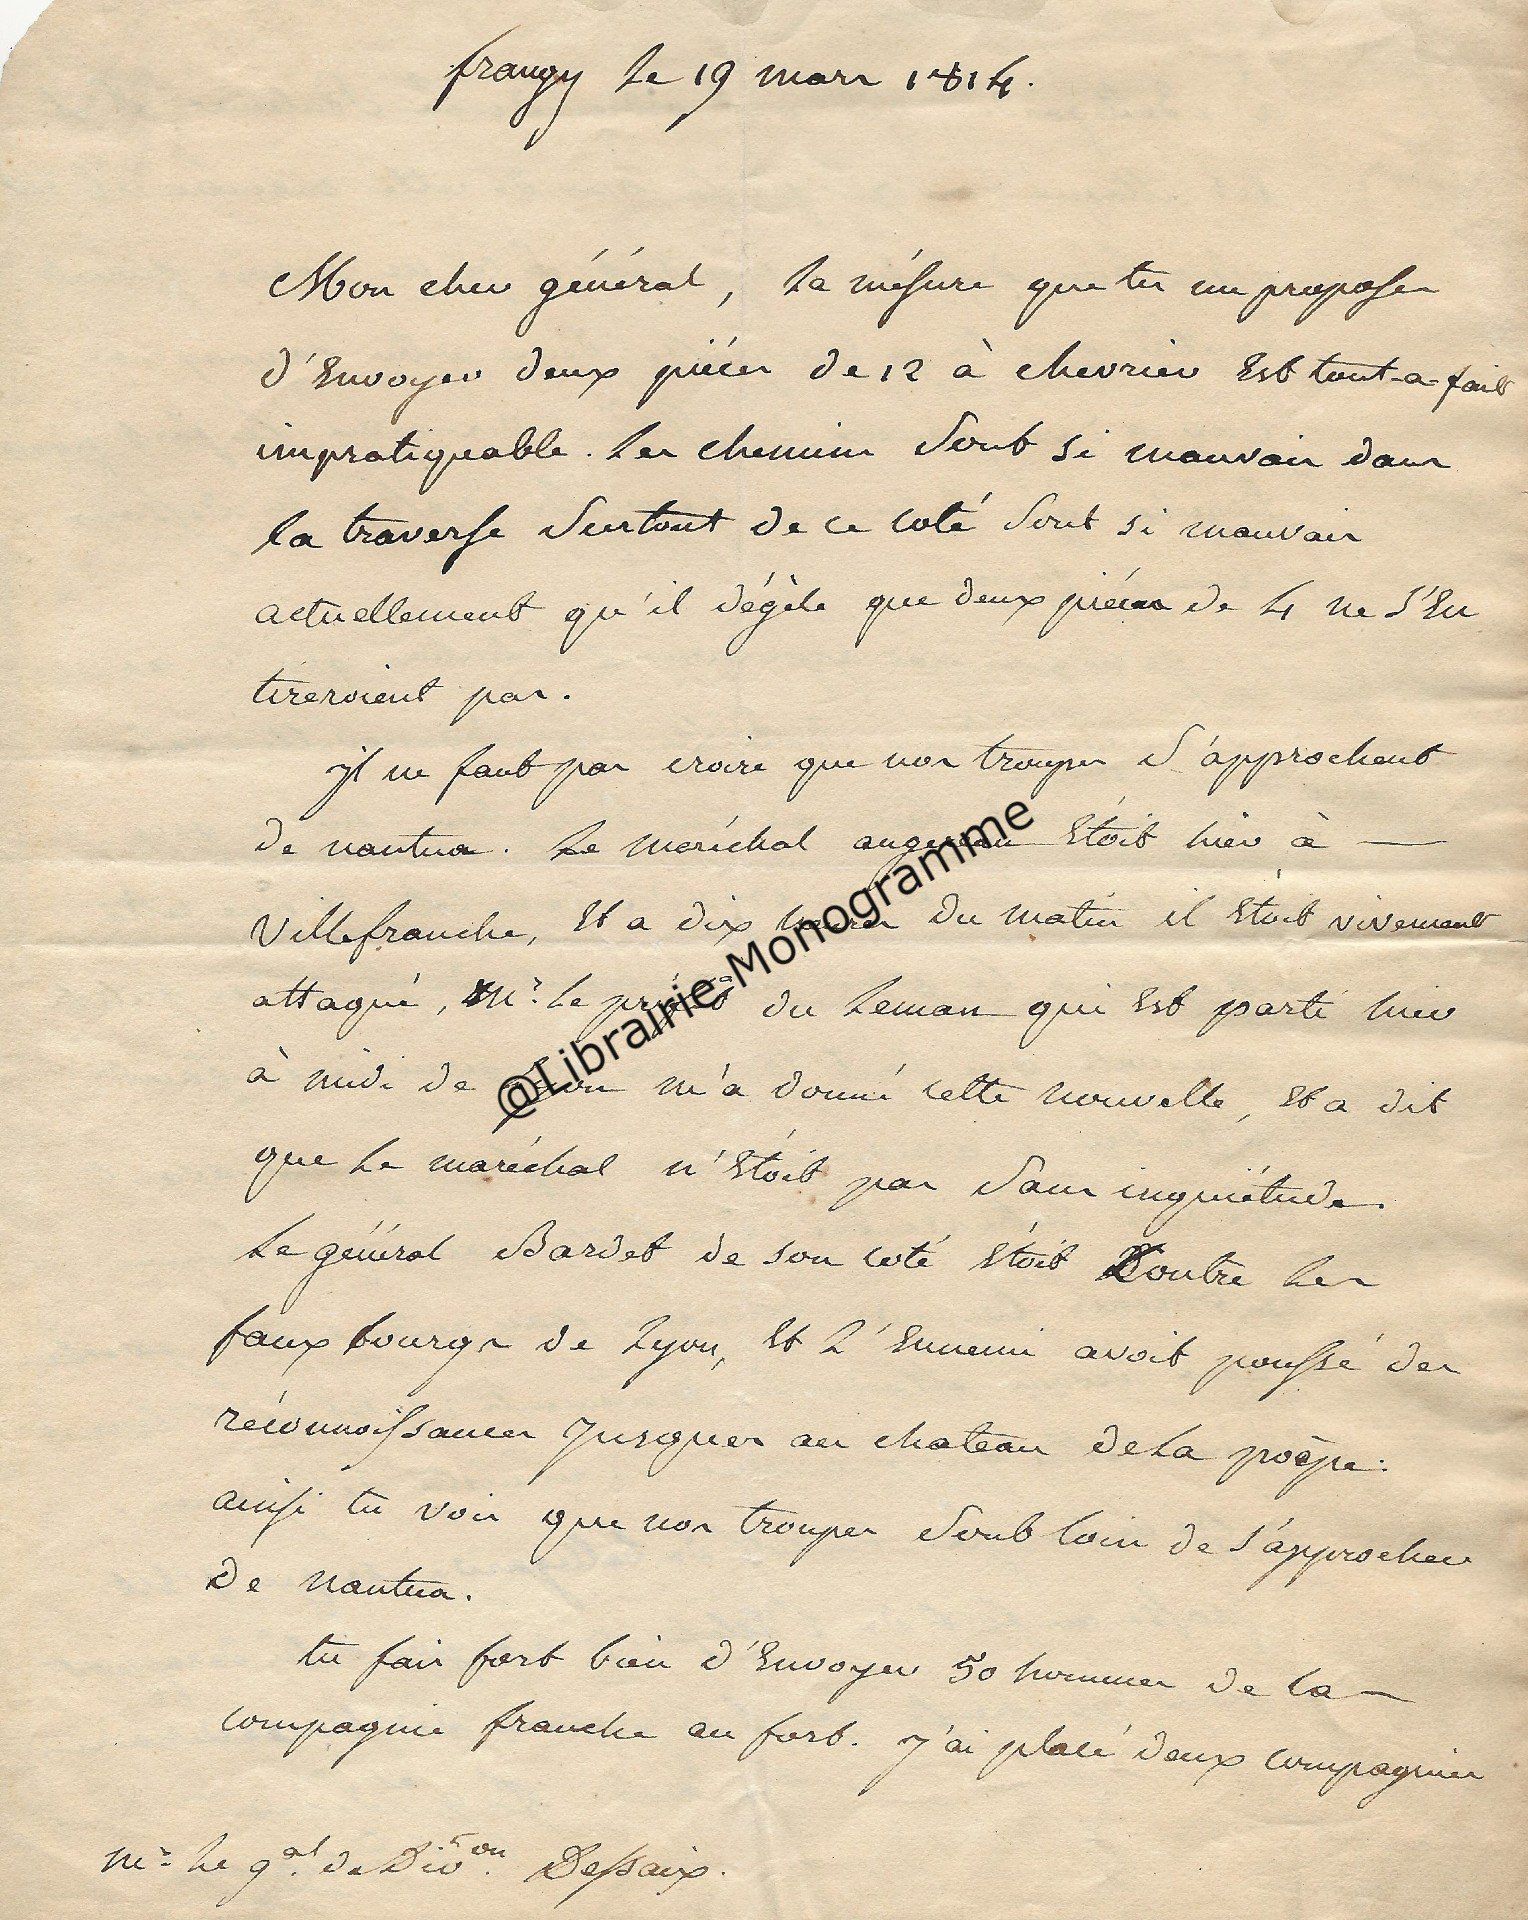 frangy le 19 mars 1814.
Mon cher général, la mésure que tu me proposes
d'Envoyer deux piéces de 12 à chevrier Est tout-a-fait
impratiqueable. Les chemins sont si mauvais dans
la traverse surtout de ce coté sont si mauvais
actuellement qu'il dégèle que deux piéces de 4 ne s'En
tireroient pas.
yl ne faut pas croire que nos troupes s'approchent
de nantua. Le maréchal augereau Etoit hier à —
villefranche, Et a dix heures du matin il Etoit vivement
attaqué, Mr. Le préfet du Leman qui Est parti hier
à midi de Lyon m'a donné cette nouvelle, Et a dit
que Le maréchal n'Etoit pas sans inquiétude.
Le général Bardet de son coté étoit Contre Les
faux bourgs de Lyon, Et L'Ennemi avoit poussé des
réconnoissances jusques au chateau de La poëpe.
ainsi tu vois que nos troupes sont loin de s'approcher
De nantua.
tu fais fort bien d'Envoyer 50 hommes de la —
compagnie franche au fort. j'ai placé deux compagnies
Mr. Le gal. de Divon. Dessaix.
@Librairie-Monogramme